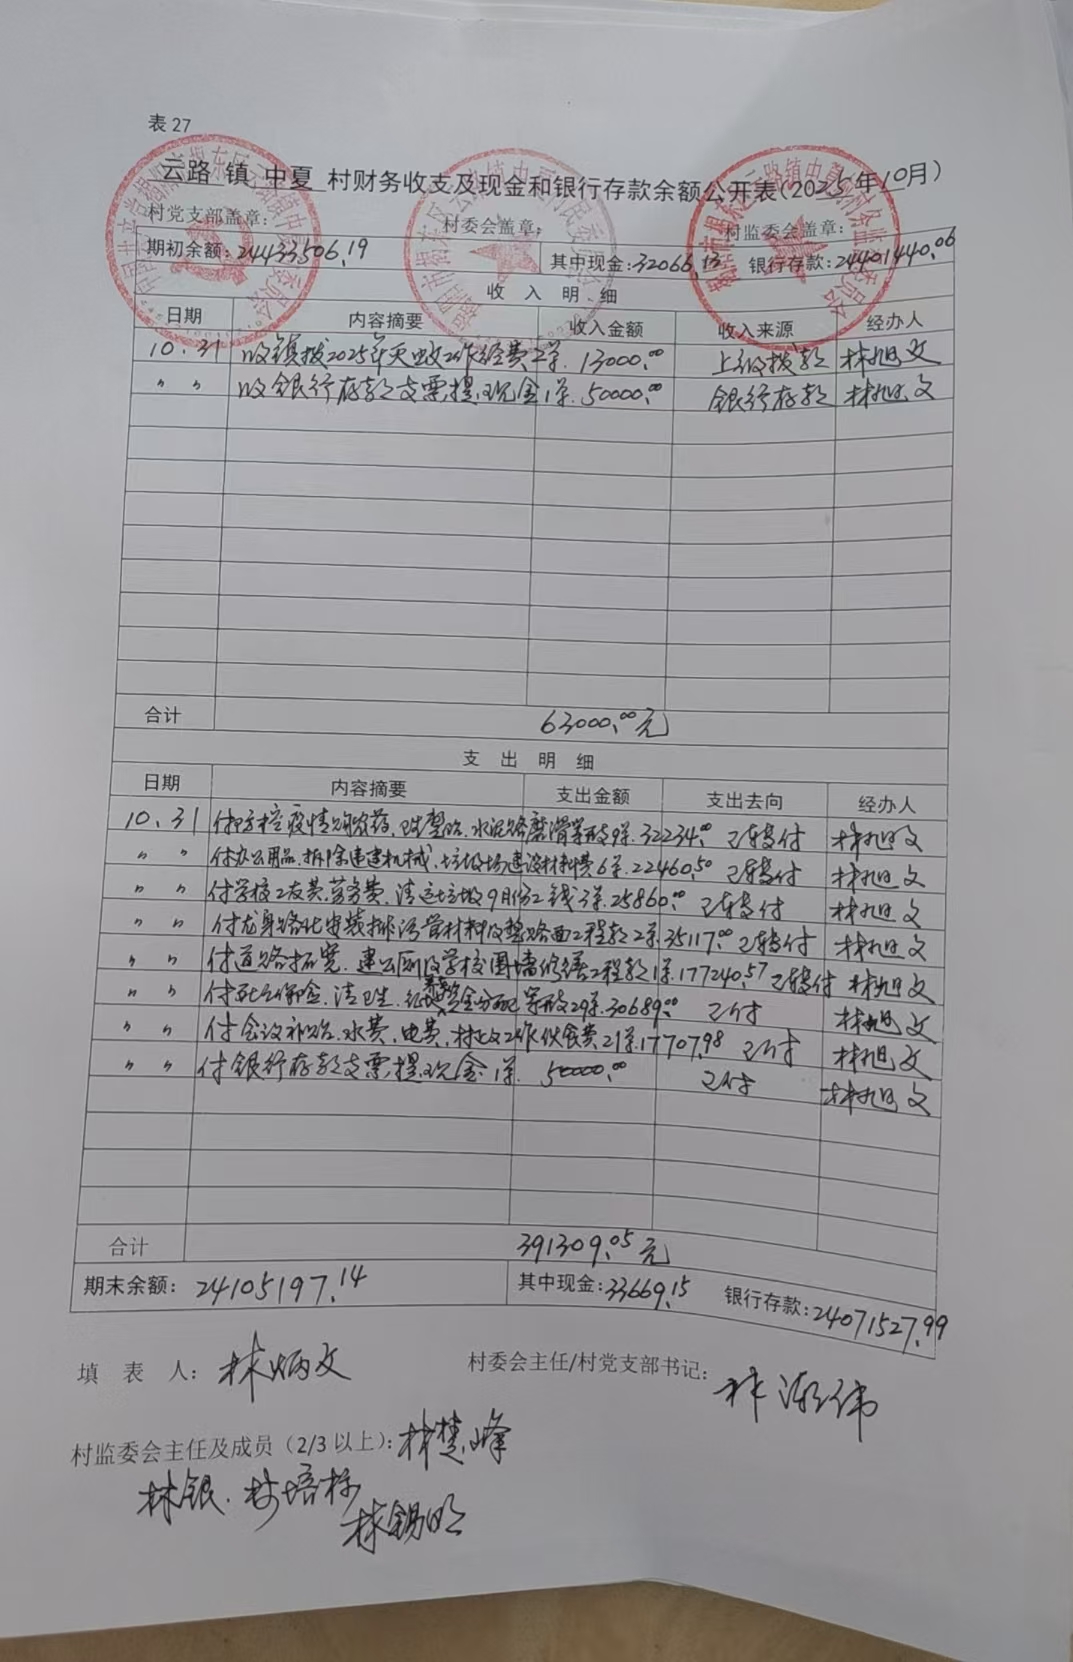 表 27
云路 镇 中夏 村财务收支及现金和银行存款余额公开表(2025年10月)
村党支部盖章: 村委会盖章: 村监委会盖章:
期初余额: 24433506.19 其中现金:32066.13 银行存款:24401440.06
收 入 明 细
日期 内容摘要 收入金额 收入来源 经办人
10.31 收镇拨2025年灭蚊工作经费2单. 13000.00 上级拨款 林旭文
〃 〃 收银行存款支票提现金1单. 50000.00 银行存款 林旭文
合计 63000.00元
支 出 明 细
日期 内容摘要 支出金额 支出去向 经办人
10.31 付防控疫情 农药, 水泥路 9单. 32234.00 已转付 林旭文
〃 〃 付办公用品.拆除违建机械.垃圾场建设材料费6单.22460.50 已转付 林旭文
〃 〃 付学校工友费.劳务费.清运垃圾9月份工钱3单.25860.00 已转付 林旭文
〃 〃 付龙身路北安装排污管材料及整路面工程款2单.35117.00 已转付 林旭文
〃 〃 付道路拓宽.建公厕及学校围墙修缮工程款1单.177240.57 已转付 林旭文
〃 〃 付 保险.清卫生. 资金分配等 29单.30689.00 已付 林旭文
〃 〃 付会议补贴.水费.电费.村政工作伙食费21单.17707.98 已付 林旭文
〃 〃 付银行存款支票提现金1单. 50000.00 已付 林旭文
合计 391309.05元
期末余额: 24105197.14 其中现金:33669.15 银行存款:24071527.99
填 表 人: 林炳文 村委会主任/村党支部书记: 林潮伟
村监委会主任及成员(2/3以上): 林楚峰
林银. 林培标
林锡明